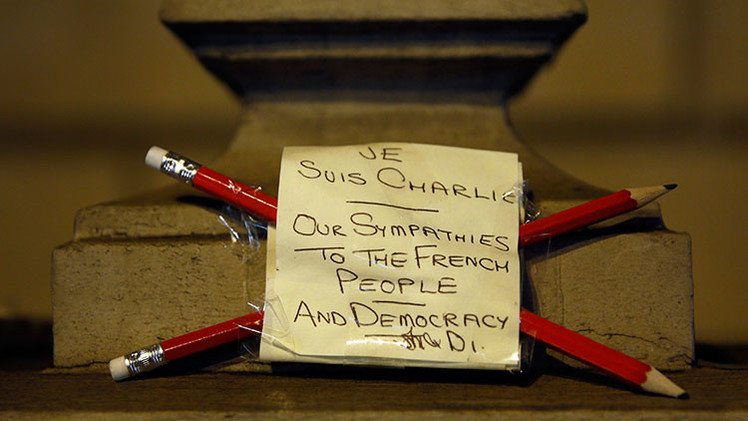 JE
SUIS CHARLIE
OUR SYMPATHIES
TO THE FRENCH
PEOPLE
AND DEMOCRACY
DI.